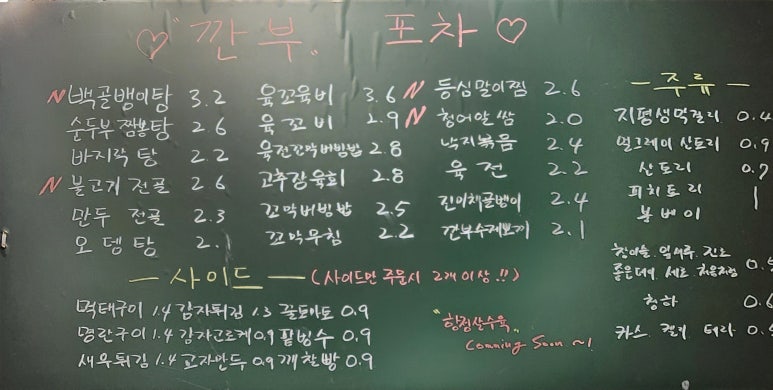 ♡ "깐부" 포차 ♡
N 백골뱅이탕 3.2
순두부 짬뽕탕 2.6
바지락 탕 2.2
N 불고기 전골 2.6
만두 전골 2.3
오뎅탕 2.1
육꼬육비 3.6
육꼬비 2.9
육전꼬막비빔밥 2.8
고추장육회 2.8
꼬막비빔밥 2.5
꼬막무침 2.2
N 등심말이찜 2.6
N 청어알 쌈 2.0
낙지볶음 2.4
육전 2.2
진미채골뱅이 2.4
깐부수제떡볶이 2.1
- 주류 -
지평생막걸리 0.4
얼그레이 산토리 0.9
산토리 0.7
피치토리 1
봄베이
참이슬, 잎새주, 진로
좋은데이, 새로, 처음처럼 0.5
청하 0.6
카스, 켈리, 테라
- 사이드 - (사이드만 주문시 2개 이상!!)
먹태구이 1.4 감자튀김 1.3 꿀토마토 0.9
명란구이 1.4 감자고로케 0.9 팥빙수 0.9
새우튀김 1.4 교자만두 0.9 깨찰빵 0.9
"항정살수육"
Comming Soon ~!